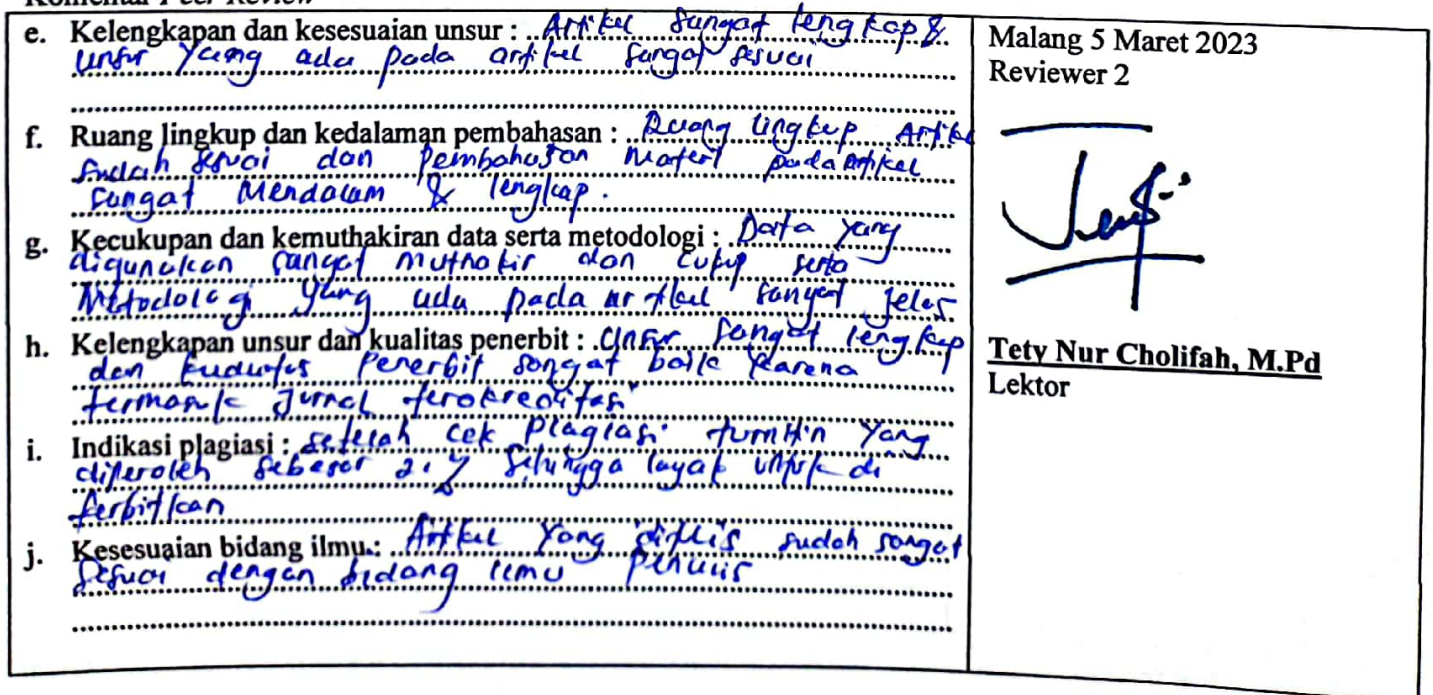 Komentar Peer Review
e. Kelengkapan dan kesesuaian unsur : Artikel sangat lengkap &
unsur yang ada pada artikel sangat sesuai
f. Ruang lingkup dan kedalaman pembahasan : Ruang lingkup Artikel
sudah sesuai dan pembahasan materi pada artikel
sangat mendalam & lengkap.
g. Kecukupan dan kemuthakiran data serta metodologi : Data yang
digunakan sangat muthakir dan cukup serta
Metodologi yang ada pada artikel sangat jelas
h. Kelengkapan unsur dan kualitas penerbit : Unsur sangat lengkap
dan kualitas Penerbit sangat baik karena
termasuk Jurnal terakreditasi
i. Indikasi plagiasi : setelah cek Plagiasi turnitin yang
diperoleh sebesar sehingga layak untuk di
terbitkan
j. Kesesuaian bidang ilmu : Artikel Yang ditulis sudah sangat
sesuai dengan bidang ilmu penulis
Malang 5 Maret 2023
Reviewer 2
Tety Nur Cholifah, M.Pd
Lektor